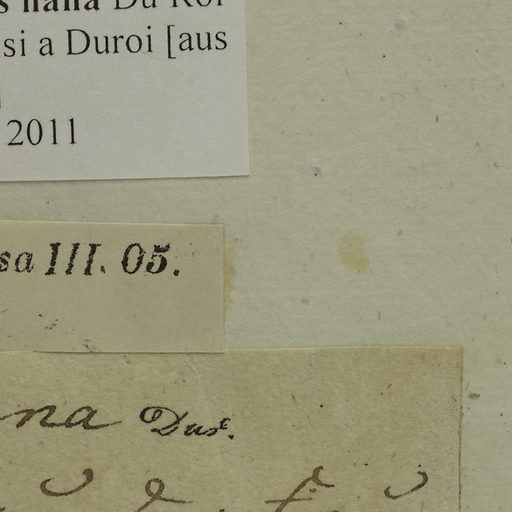 s nana Du Roi
si a Duroi [aus
2011
sa III. 05.
na Dur.